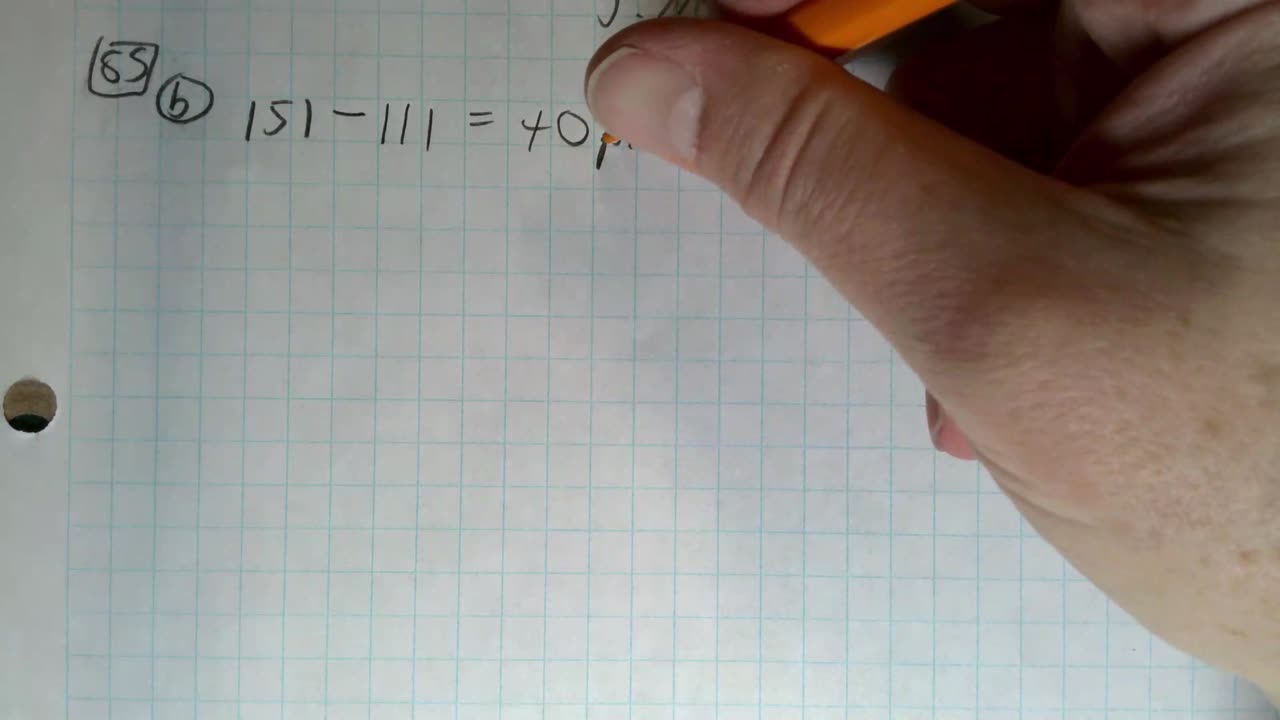 85
b 151 - 111 = 40